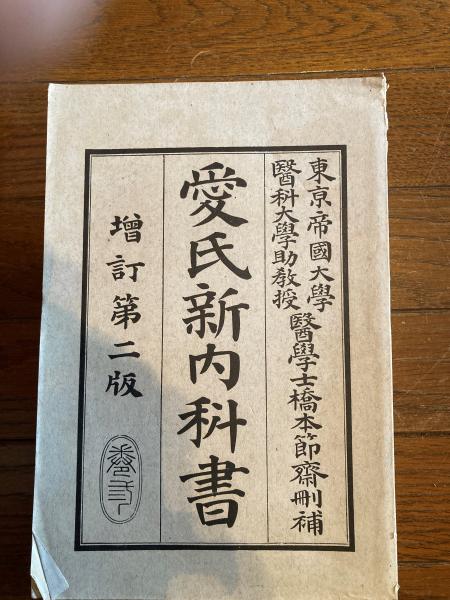 東京帝國大學
醫科大學助教授
醫學士橋本節齋刪補
愛氏新内科書
增訂第二版